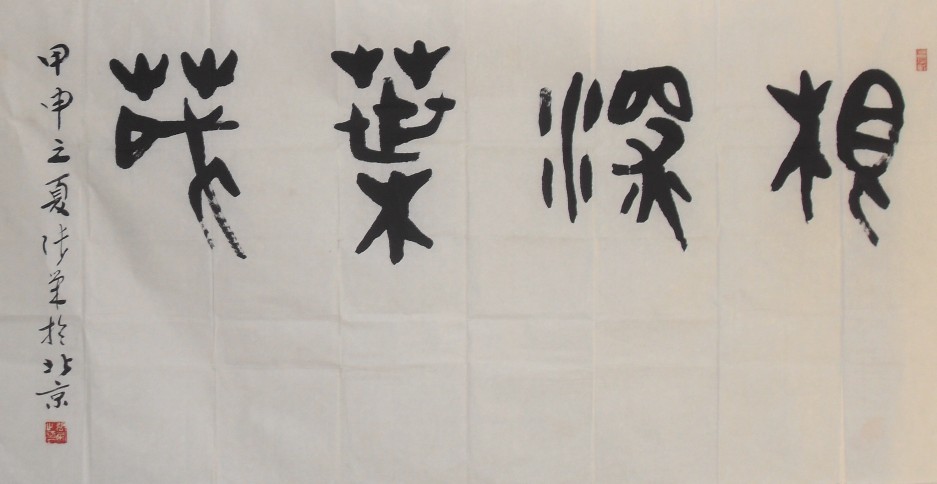 根深葉茂
甲申之夏陟業於北京